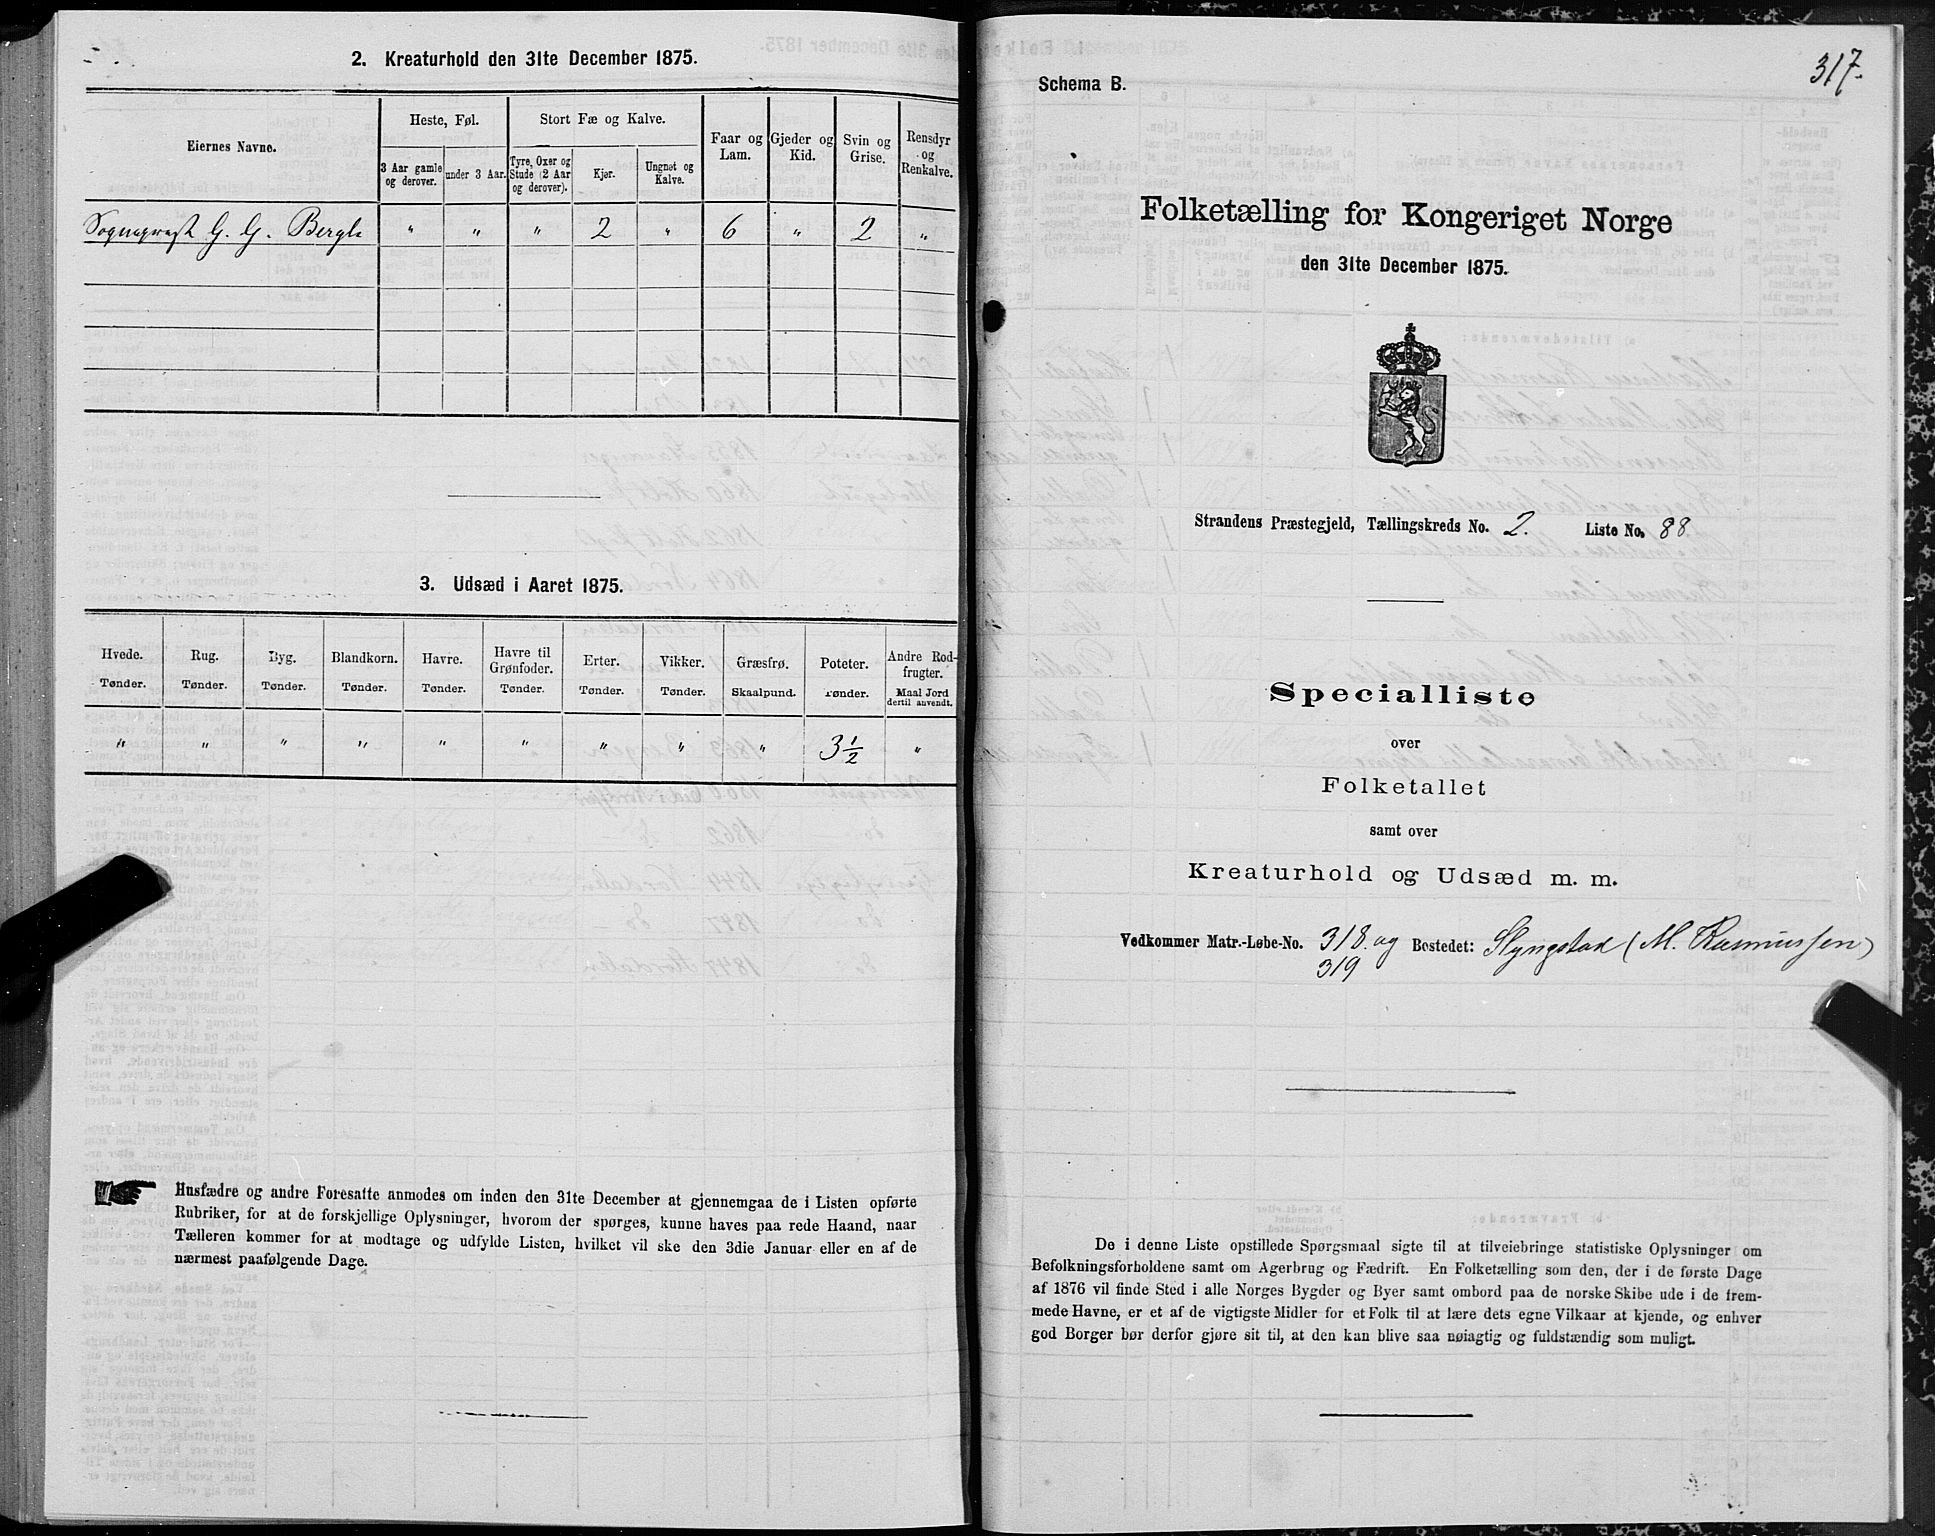 2. Kreaturhold den 31te December 1875.
Eiernes Navne.
Heste, Føl.
Stort Fæ og Kalve.
Faar og Lam.
Gjeder og Kid.
Svin og Grise.
Rensdyr og Renkalve.
3 Aar gamle og derover.
under 3 Aar.
Tyre, Oxer og Stude (2 Aar og derover).
Kjør.
Ungnøt og Kalve.
Sogneprest G. G. Bergh " " " 2 " 6 " 2 "
3. Udsæd i Aaret 1875.
Hvede. Rug. Byg. Blandkorn. Havre. Havre til Grønfoder. Erter. Vikker. Græsfrø. Poteter. Andre Rodfrugter.
Tønder. Tønder. Tønder. Tønder. Tønder. Tønder. Tønder. Tønder. Skaalpund. Tønder. Maal Jord dertil anvendt.
" " " " " " " " " 3 1/2 "
Husfædre og andre Foresatte anmodes om inden den 31te December at gjennemgaa de i Listen opførte
Rubriker, for at de forskjellige Oplysninger, hvorom der spørges, kunne haves paa rede Haand, naar
Tælleren kommer for at modtage og udfylde Listen, hvilket vil ske den 3die Januar eller en af de
nærmest paafølgende Dage.
317.
Schema B.
Folketælling for Kongeriget Norge
den 31te December 1875.
Strandens Præstegjeld, Tællingskreds No. 2. Liste No. 88
Specialliste
over
Folketallet
samt over
Kreaturhold og Udsæd m. m.
Vedkommer Matr.-Løbe-No. 318. og Bostedet: Slyngstad (M. Rasmussen)
319
De i denne Liste opstillede Spørgsmaal sigte til at tilveiebringe statistiske Oplysninger om
Befolkningsforholdene samt om Agerbrug og Fædrift. En Folketælling som den, der i de første Dage
af 1876 vil finde Sted i alle Norges Bygder og Byer samt ombord paa de norske Skibe ude i de frem-
mede Havne, er et af de vigtigste Midler for et Folk til at lære dets egne Vilkaar at kjende, og enhver
god Borger bør derfor gjøre sit til, at den kan blive saa nøiagtig og fuldstændig som muligt.